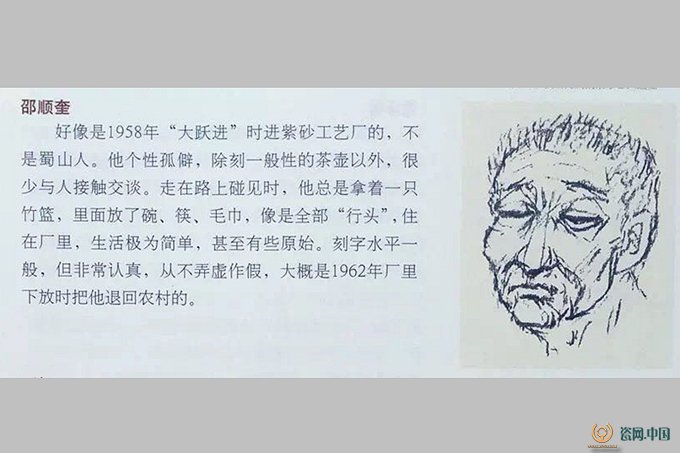 邵顺奎
好像是1958年“大跃进”时进紫砂工艺厂的，不
是蜀山人。他个性孤僻，除刻一般性的茶壶以外，很
少与人接触交谈。走在路上碰见时，他总是拿着一只
竹篮，里面放了碗、筷、毛巾，像是全部“行头”，住
在厂里，生活极为简单，甚至有些原始。刻字水平一
般，但非常认真，从不弄虚作假，大概是1962年厂里
下放时把他退回农村的。
瓷网.中国